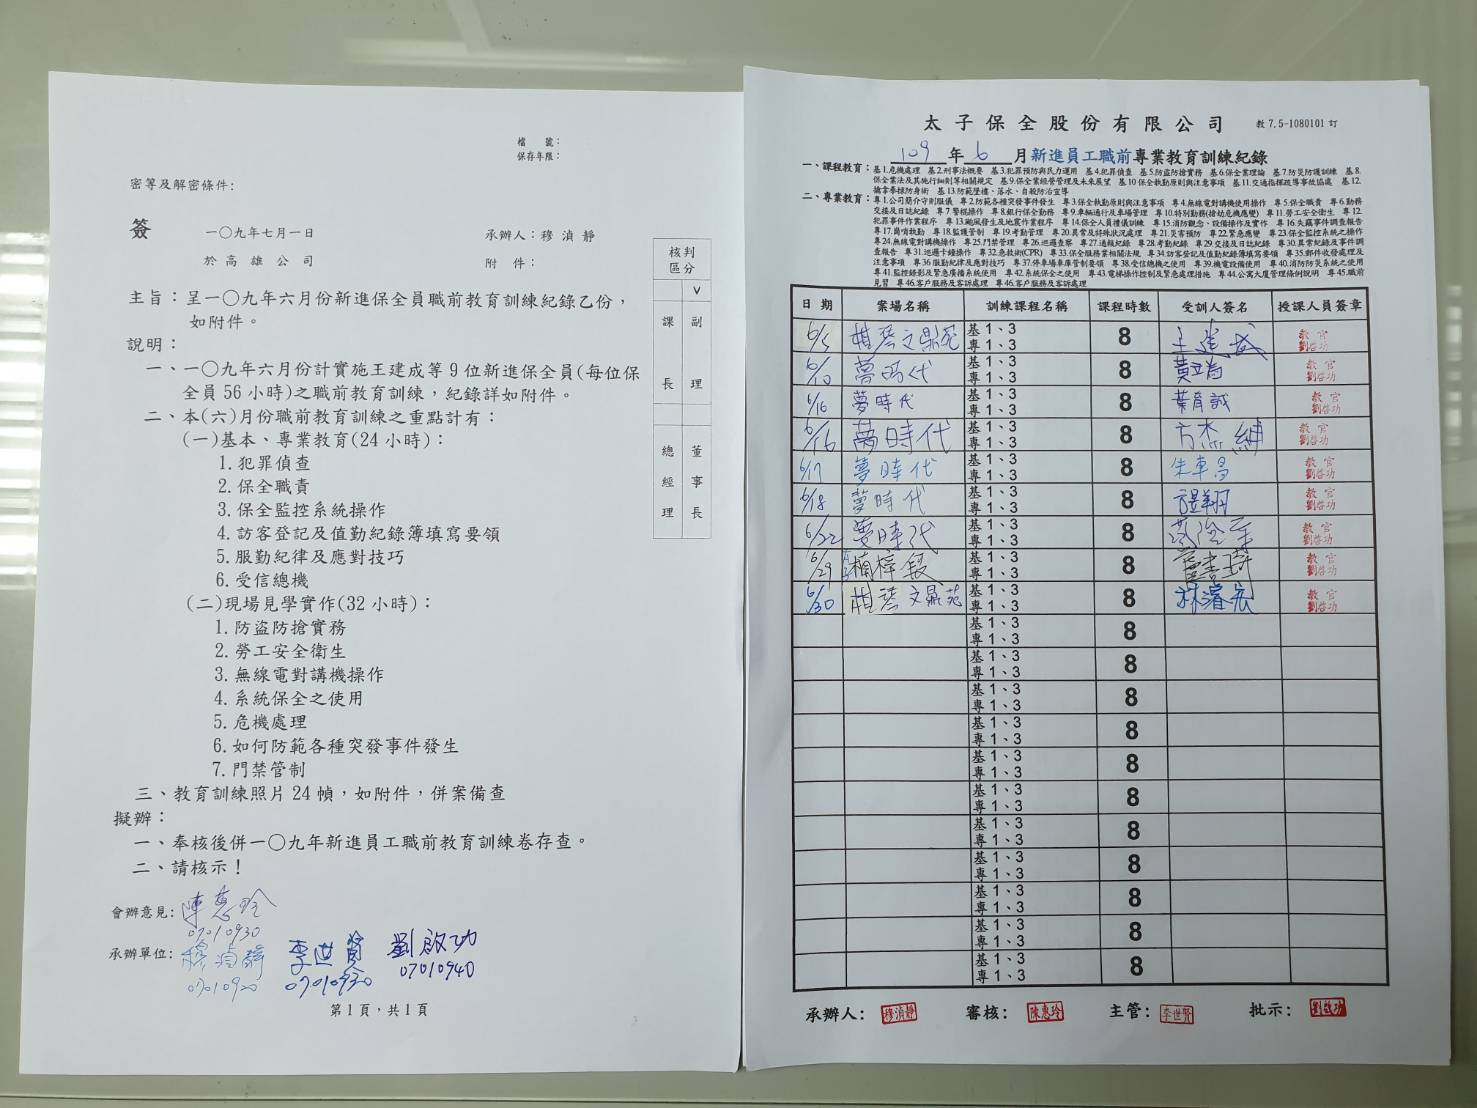 檔　號：
保存年限：
密等及解密條件：
簽
一〇九年七月一日
於高雄公司
承辦人：穆湞靜
附件：
核判區分
V
課長
副理
總經理
董事長
主旨：呈一〇九年六月份新進保全員職前教育訓練紀錄乙份，
如附件。
說明：
一、一〇九年六月份計實施王建成等9位新進保全員(每位保
全員56小時)之職前教育訓練，紀錄詳如附件。
二、本(六)月份職前教育訓練之重點計有：
(一)基本、專業教育(24小時)：
1.犯罪偵查
2.保全職責
3.保全監控系統操作
4.訪客登記及值勤紀錄簿填寫要領
5.服勤紀律及應對技巧
6.受信總機
(二)現場見學實作(32小時)：
1.防盜防搶實務
2.勞工安全衛生
3.無線電對講機操作
4.系統保全之使用
5.危機處理
6.如何防範各種突發事件發生
7.門禁管制
三、教育訓練照片24幀，如附件，併案備查
擬辦：
一、奉核後併一〇九年新進員工職前教育訓練卷存查。
二、請核示！
會辦意見：陳惠玲
07010930
承辦單位：穆湞靜 李世賢 劉啟功
07010920 07010930 07010940
第1頁，共1頁
太子保全股份有限公司 教7.5-1080101訂
109年6月新進員工職前專業教育訓練紀錄
一、課程教育：基1.危機處理 基2.刑事法概要 基3.犯罪預防與民力運用 基4.犯罪偵查 基5.防盜防搶實務 基6.保全業理論 基7.防災防護訓練 基8.
保全業法及其施行細則等相關規定 基9.保全業經營管理及未來展望 基10保全執勤原則與注意事項 基11.交通指揮疏導事故協處 基12.
擒拿拳術防身術 基13.防範墜樓、落水、自殺防治宣導
二、專業教育：專1.公司簡介守則服儀 專2.防範各種突發事件發生 專3.保全執勤原則與注意事項 專4.無線電對講機使用操作 專5.保全職責 專6.勤務
交接及日誌紀錄 專7警棍操作 專8.銀行保全勤務 專9.車輛通行及車場管理 專10.特別勤務(搶劫危機應變) 專11.勞工安全衛生 專12.
犯罪事件作業程序 專13.颱風發生及地震作業程序 專14.保全人員禮儀訓練 專15.消防觀念、設備操作及實作 專16.失竊事件調查報告
專17.崗哨執勤 專18.監護管制 專19.考勤管理 專20.異常及特殊狀況處理 專21.災害預防 專22.緊急應變 專23.保全監控系統之操作
專24.無線電對講機操作 專25.門禁管理 專26.巡邏查察 專27.通報紀錄 專28.考勤紀錄 專29.交接及日誌紀錄 專30.異常紀錄及事件調
查報告 專31.巡邏卡鐘操作 專32.急救術(CPR) 專33.保全服務業相關法規 專34.訪客登記及值勤紀錄簿填寫要領 專35.郵件收發處理及
注意事項 專36.服勤紀律及應對技巧 專37.停車場車庫管制要領 專38.受信總機之使用 專39.機電設備使用 專40.消防防災系統之使用
專41.監控錄影及緊急廣播系統使用 專42.系統保全之使用 專43.電梯操作控制及緊急處理措施 專44.公寓大廈管理條例說明 專45.職前
見習 專46.客戶服務及客訴處理 專46.客戶服務及客訴處理
日期 案場名稱 訓練課程名稱 課程時數 受訓人簽名 授課人員簽章
6/5 文鼎苑 基1、3 專1、3 8 王建成 教官劉啓功
6/10 夢時代 基1、3 專1、3 8 教官劉啓功
6/16 夢時代 基1、3 專1、3 8 葉育誠 教官劉啓功
6/16 夢時代 基1、3 專1、3 8 教官劉啓功
6/17 夢時代 基1、3 專1、3 8 教官劉啓功
6/18 夢時代 基1、3 專1、3 8 教官劉啓功
6/22 夢時代 基1、3 專1、3 8 教官劉啓功
6/29 楠梓段 基1、3 專1、3 8 教官劉啓功
6/30 文鼎苑 基1、3 專1、3 8 林濬宏 教官劉啓功
基1、3 專1、3 8
基1、3 專1、3 8
基1、3 專1、3 8
基1、3 專1、3 8
基1、3 專1、3 8
基1、3 專1、3 8
基1、3 專1、3 8
基1、3 專1、3 8
基1、3 專1、3 8
基1、3 專1、3 8
基1、3 專1、3 8
承辦人：穆湞靜 審核：陳惠玲 主管：李世賢 批示：劉啟功